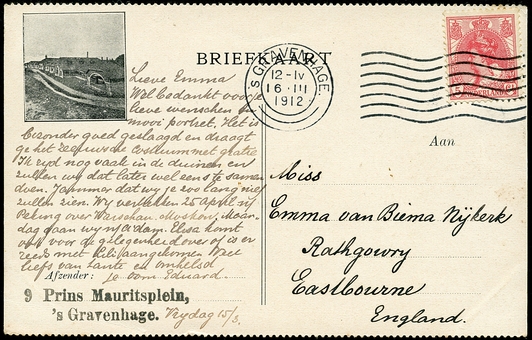 BRIEFKAART
's GRAVENHAGE.
12-IV
16 III
1912
Lieve Emma
Wel bedankt voor je
lieve wenschen en
mooi portret. Het is
bizonder goed geslaagd en draagt
ge het Zeeuwsche costuum met gratie
Ik rijd nog vaak in de duinen en
zullen wij dat later wel eens te samen
doen. Jammer dat wij je zoo lang niet
zullen zien. Wij vertrekken 25 April
Peking over Warschau, Moskou,
dag gaan wij A'dam. Elsa komt
voor de gelegenheid over
reeds met aangekomen
liefs van tante en
je oom Eduard.
Afzender:
9 Prins Mauritsplein,
's Gravenhage. Vrydag 15/3.
Aan
Miss
Emma van Biema Nijkerk
Rathgowry
Eastbourne
England.